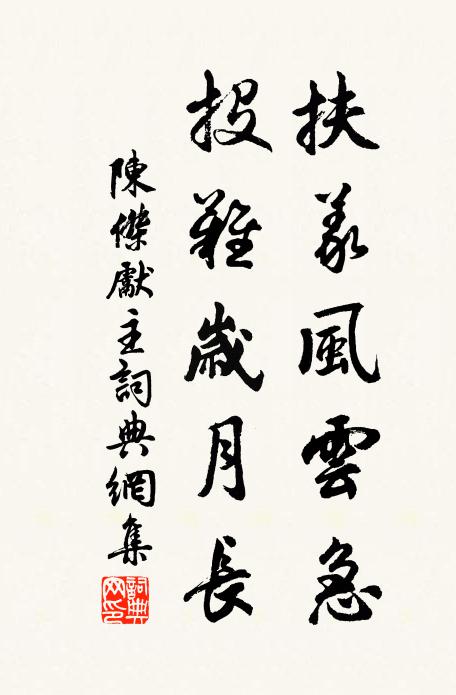 扶義風雲急
投難歲月長
陳傑獻主詞典網集
詞典網印